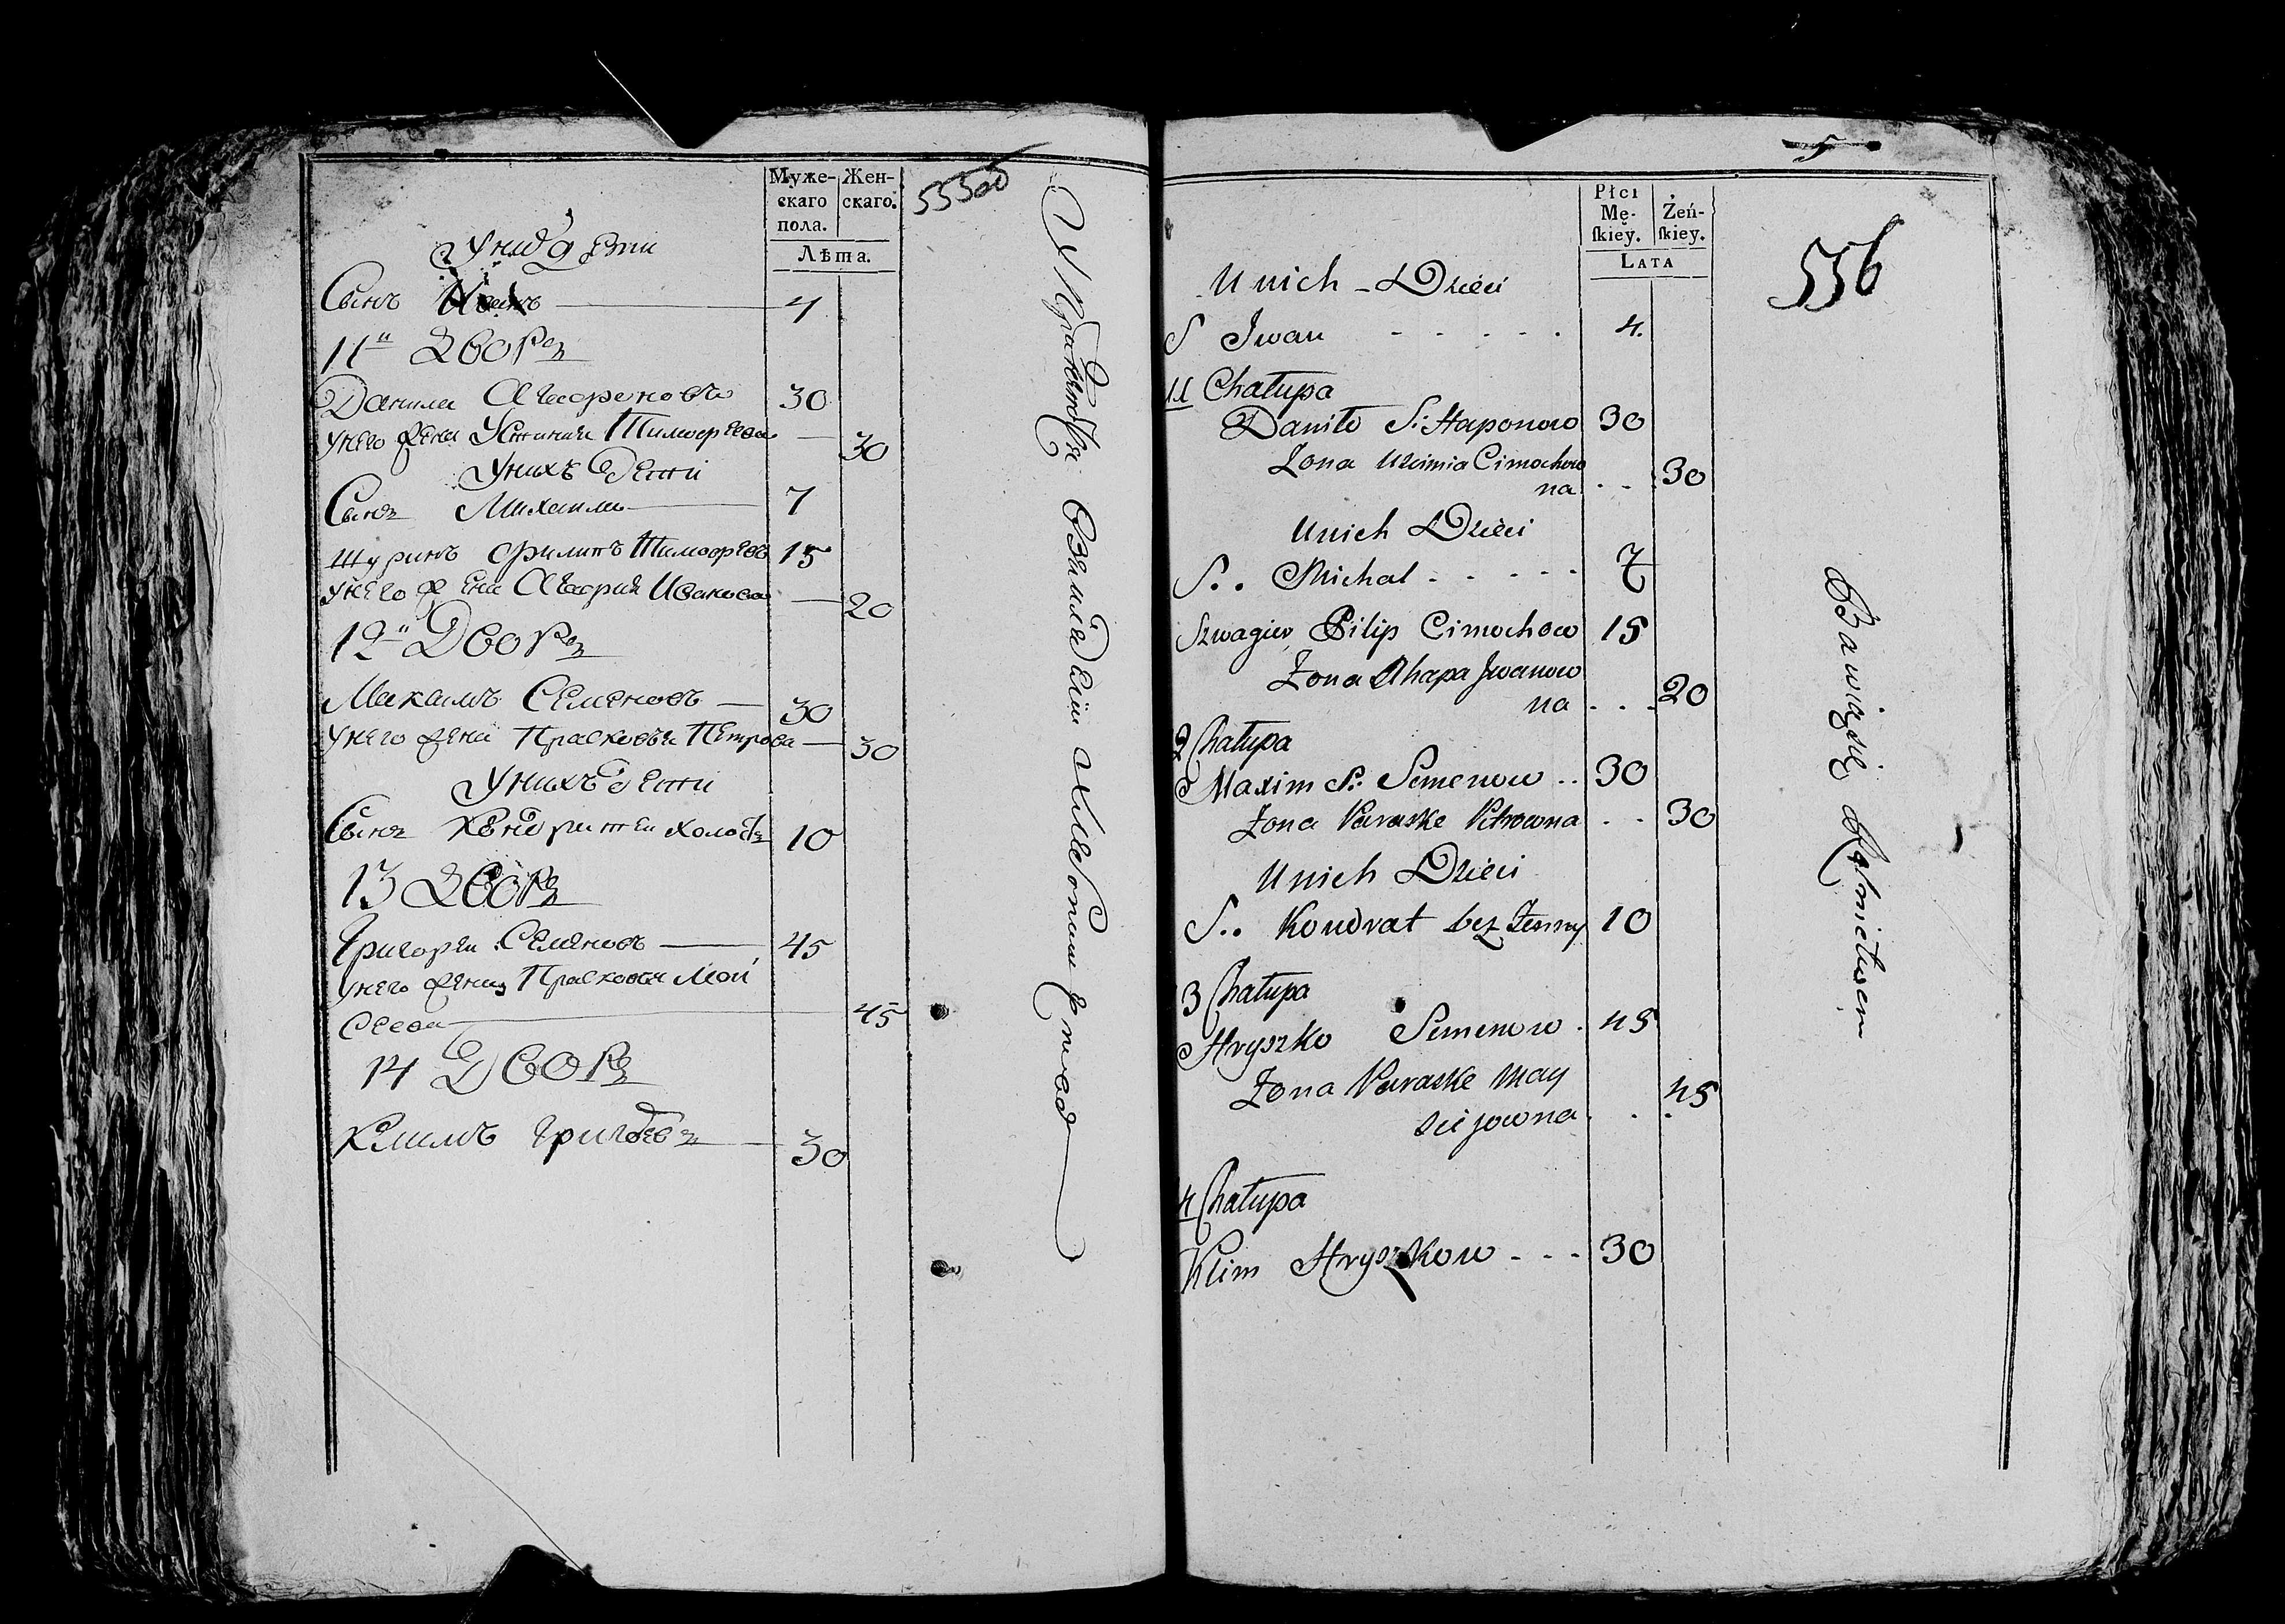 Муже-
скаго
пола.
Жен-
скаго.
Лѣта.
555об
У них дети
Сынъ Иванъ 4
11й Дворъ
Данила Агафоновъ 30
у него жена Устинья Тимофеева 30
У нихъ дети
Сынъ Михаила 7
шуринъ Филипъ Тимофеевъ 15
у него жена Агафия Иванова 20
12й Дворъ
Максимъ Семеновъ 30
у него жена Прасковья Петрова 30
У нихъ дети
Сынъ Кондратей холостъ 10
13 Дворъ
Григорей Семеновъ 45
у него жена Прасковья Мои
сеева 45
14 Дворъ
Климъ Григорьевъ 30
Płci
Mę-
ſkiey.
Żeń-
ſkiey.
Lata
5
556
U nich Dzieci
S Iwan 4.
11 Chałupa
Daniło S: Haponow 30
Żona Cimochow
na 30
U nich Dzieci
S.. Michał 7
Szwagier Pilip Cimochow 15
Żona Ahapa Iwanow
na 20
2 Chałupa
Maxim S: Semenow 30
Żona Paraske Petrowna 30
U nich Dzieci
S.. Kondrat bez Żenny 10
3 Chałupa
Hryszko Semenow 45
Żona Paraske May
siejowna 45
4 Chałupa
Klim Hryszkow 30
Bawią się